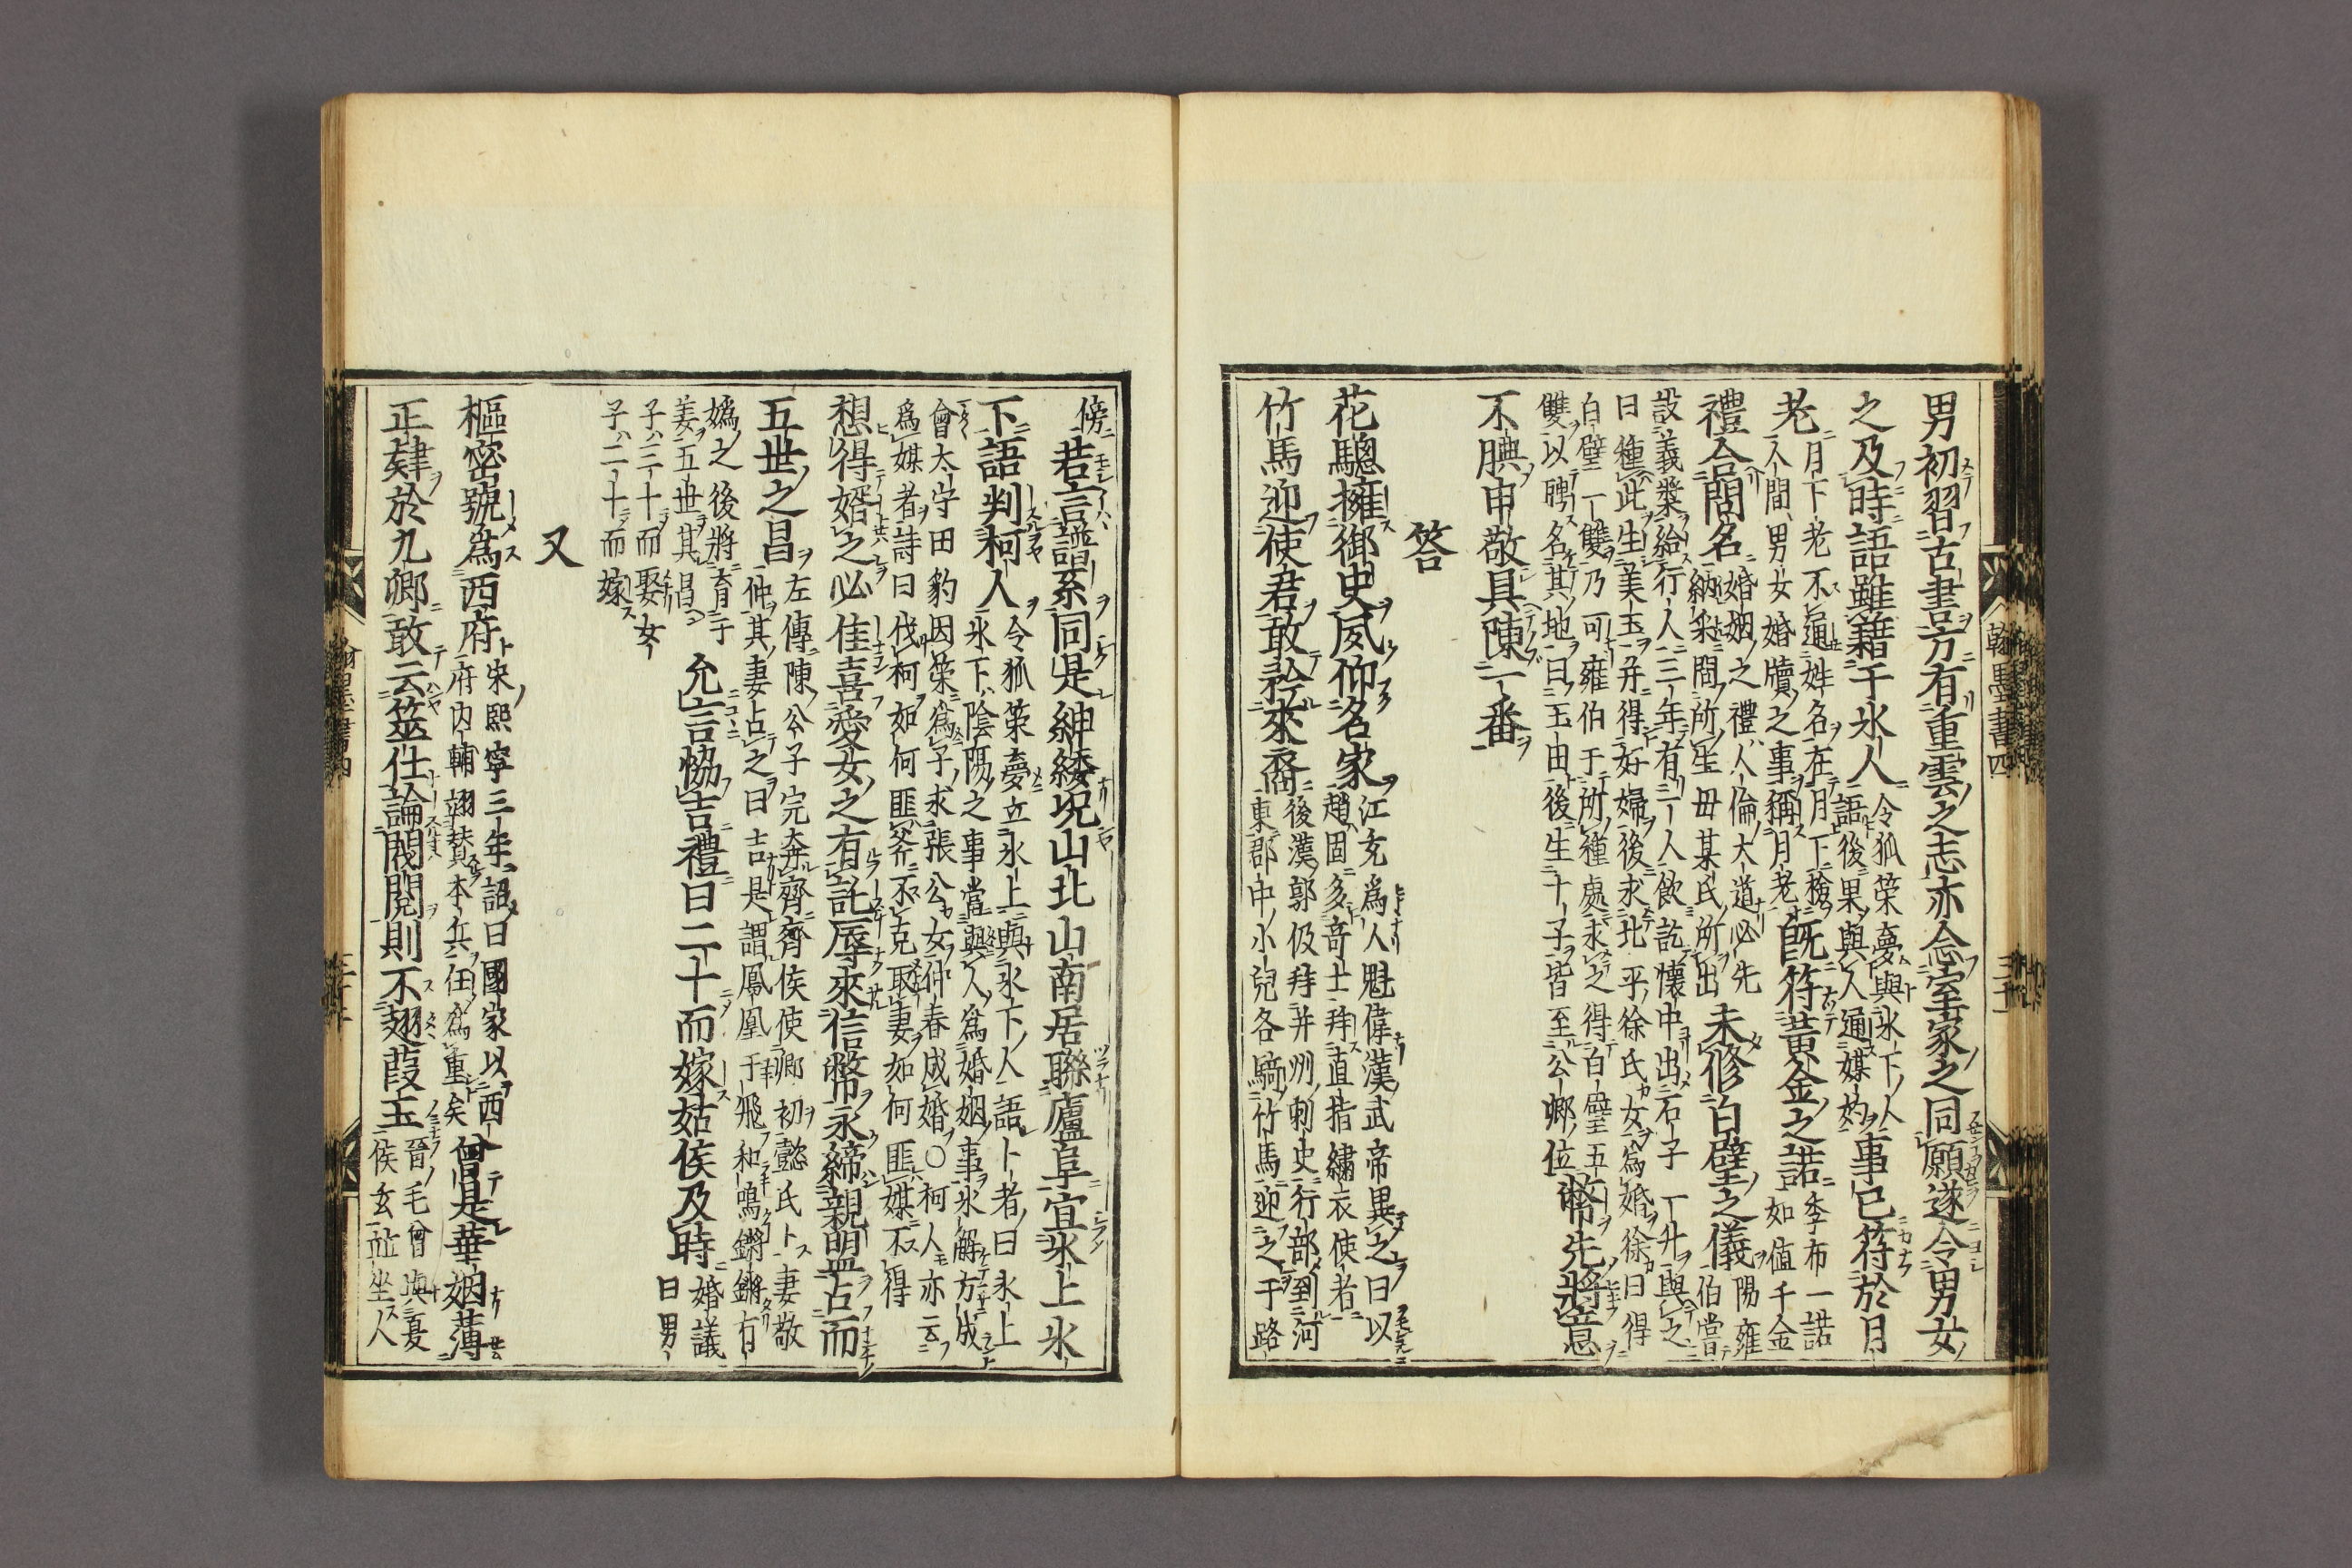 男初習古書方有重雲之志亦念室家之同願遂令男女
之及時語雖藉千氷人令狐荣夢與氷下人
語後果與人通媒妁事已符於月
老月下老不通姓名在月下檢
人間男女婚牘之事稱月老既符黄金之諾季布一諾
如値千金
禮合問名婚姻之禮人倫大道必先
納釆問所生母某氏所出未修白璧之儀陽雍
伯嘗
設義漿給行人三年有一人飲訖懷中出石子一升與之
曰種此生美玉并得好婦後求北平徐氏女爲婚徐曰得
白璧一雙乃可雍伯于所種處求之得白璧五
雙以聘名其地曰玉田後生十子皆至公卿位幣先將意
不腆申敬具陳一番
答
花驄擁御史威仰名家江充爲人魁偉漢武帝異之曰以
趙固多竒士拜直指繡衣使者
竹馬迎使君敢訟來裔後漢郭伋拜并州刺史行部到河
東郡中小兒各騎竹馬迎之于路
傍若言譜系同是紳緌况山北山南居聯廬阜宜氷上氷
下語判柯人令狐策夢立氷上與氷下人語卜者曰氷上
氷下陰陽之事當與人爲婚姻事氷解方成
會太守田豹因策爲子求張公女仲春成婚〇柯人亦云
爲媒者詩曰伐柯如何匪斧不克取妻如何匪媒不得
想得婿之必佳喜愛女之有託辱來信幣永締親盟占而
五世之昌左傳陳公子完奔齊齊侯使卿初懿氏卜妻敬
仲其妻占之曰吉是謂鳳凰于飛和鳴鏘鏘有
嬀之後將育于
姜五世其昌允言恊吉禮曰二十而嫁姑俟及時婚議
曰男
子ハ三十而娶女
子ハ二十而嫁
又
樞宻號爲西府宋熙寧三年詔曰國家以西
府内輔翊賛本兵任爲重矣曾是華姻薄
正肄於九卿敢云筮仕論閥閲則不翅葭玉晉毛曾與夏
侯玄並坐人
翰墨書四